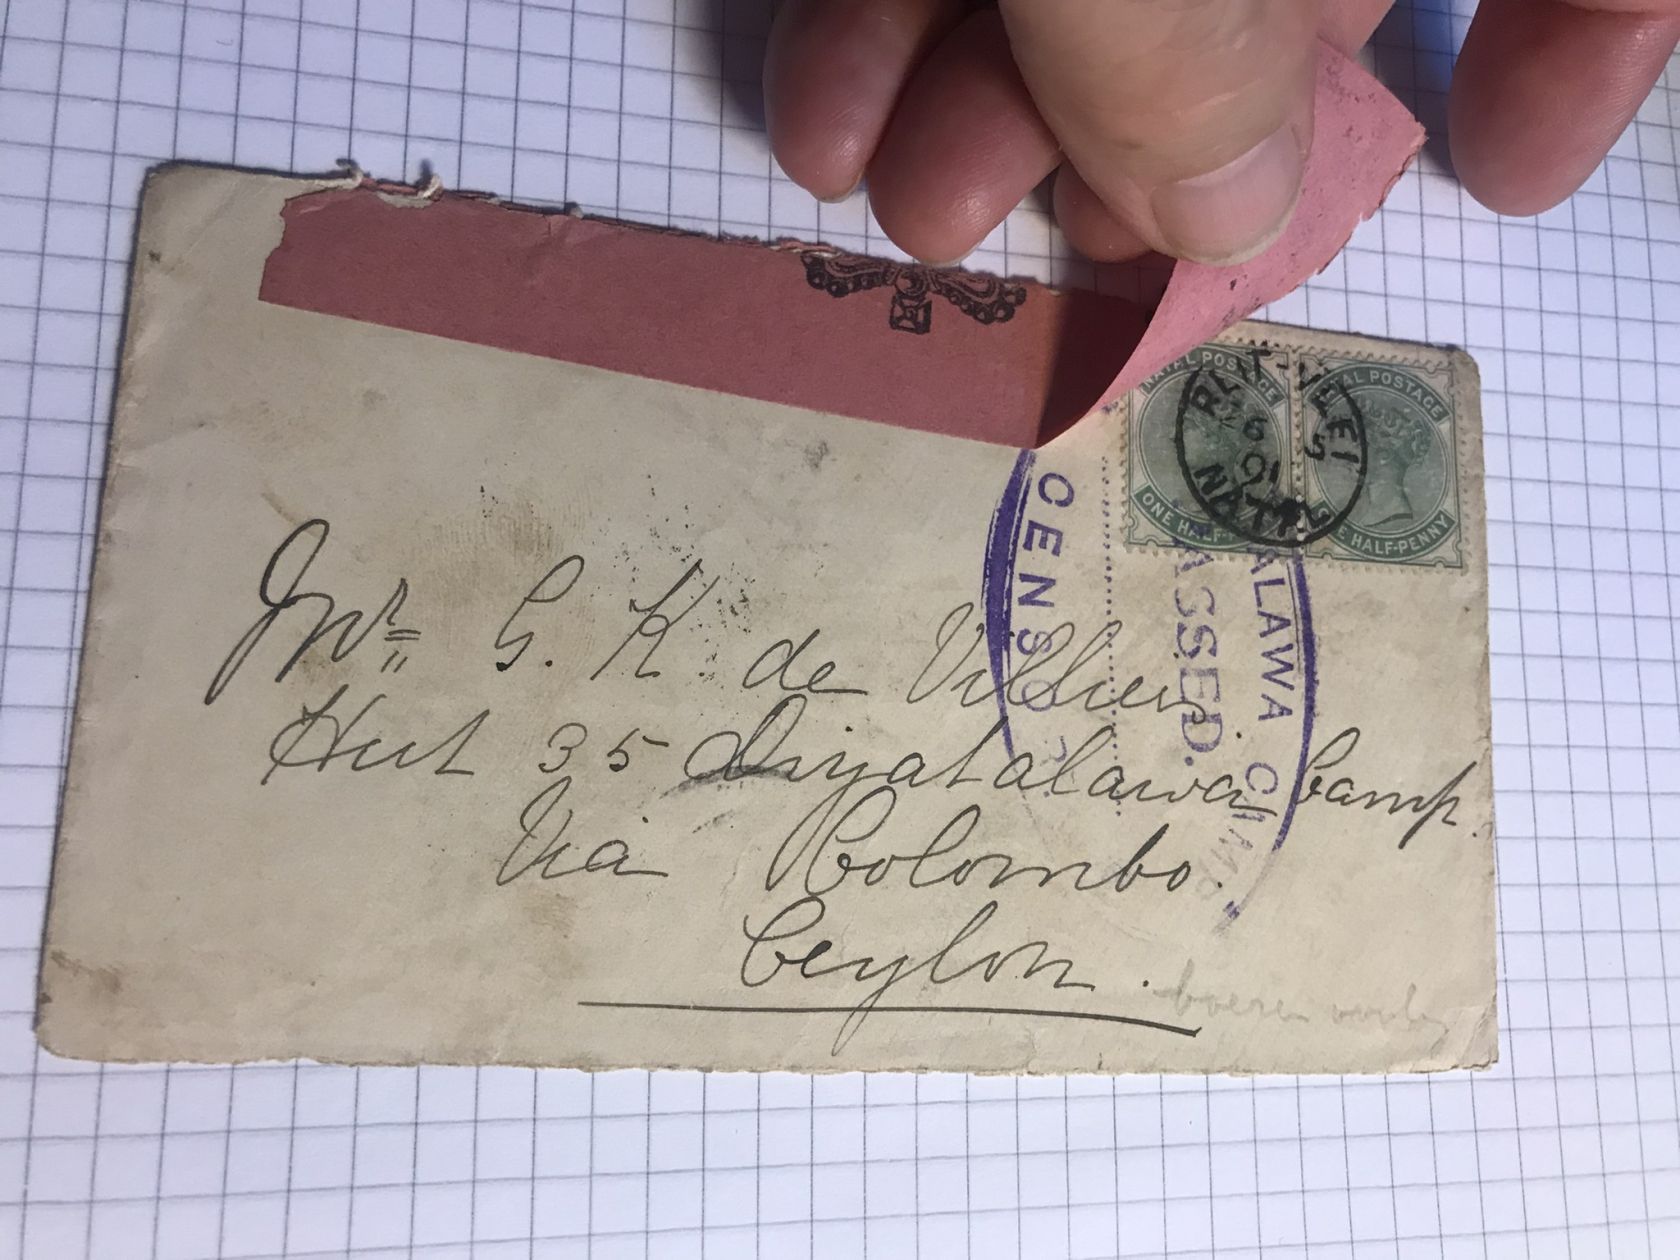 NATAL POSTAGE
ONE HALF-
NATAL POSTAGE
ONE HALF-PENNY
RLIT-VLEI
5
01
NATAL
CENSOR
PASSED.
ALAWA CAMP
Mr. G. K. de Villiers
Hut 35 Diyatalawa Camp.
Via Colombo.
Ceylon.